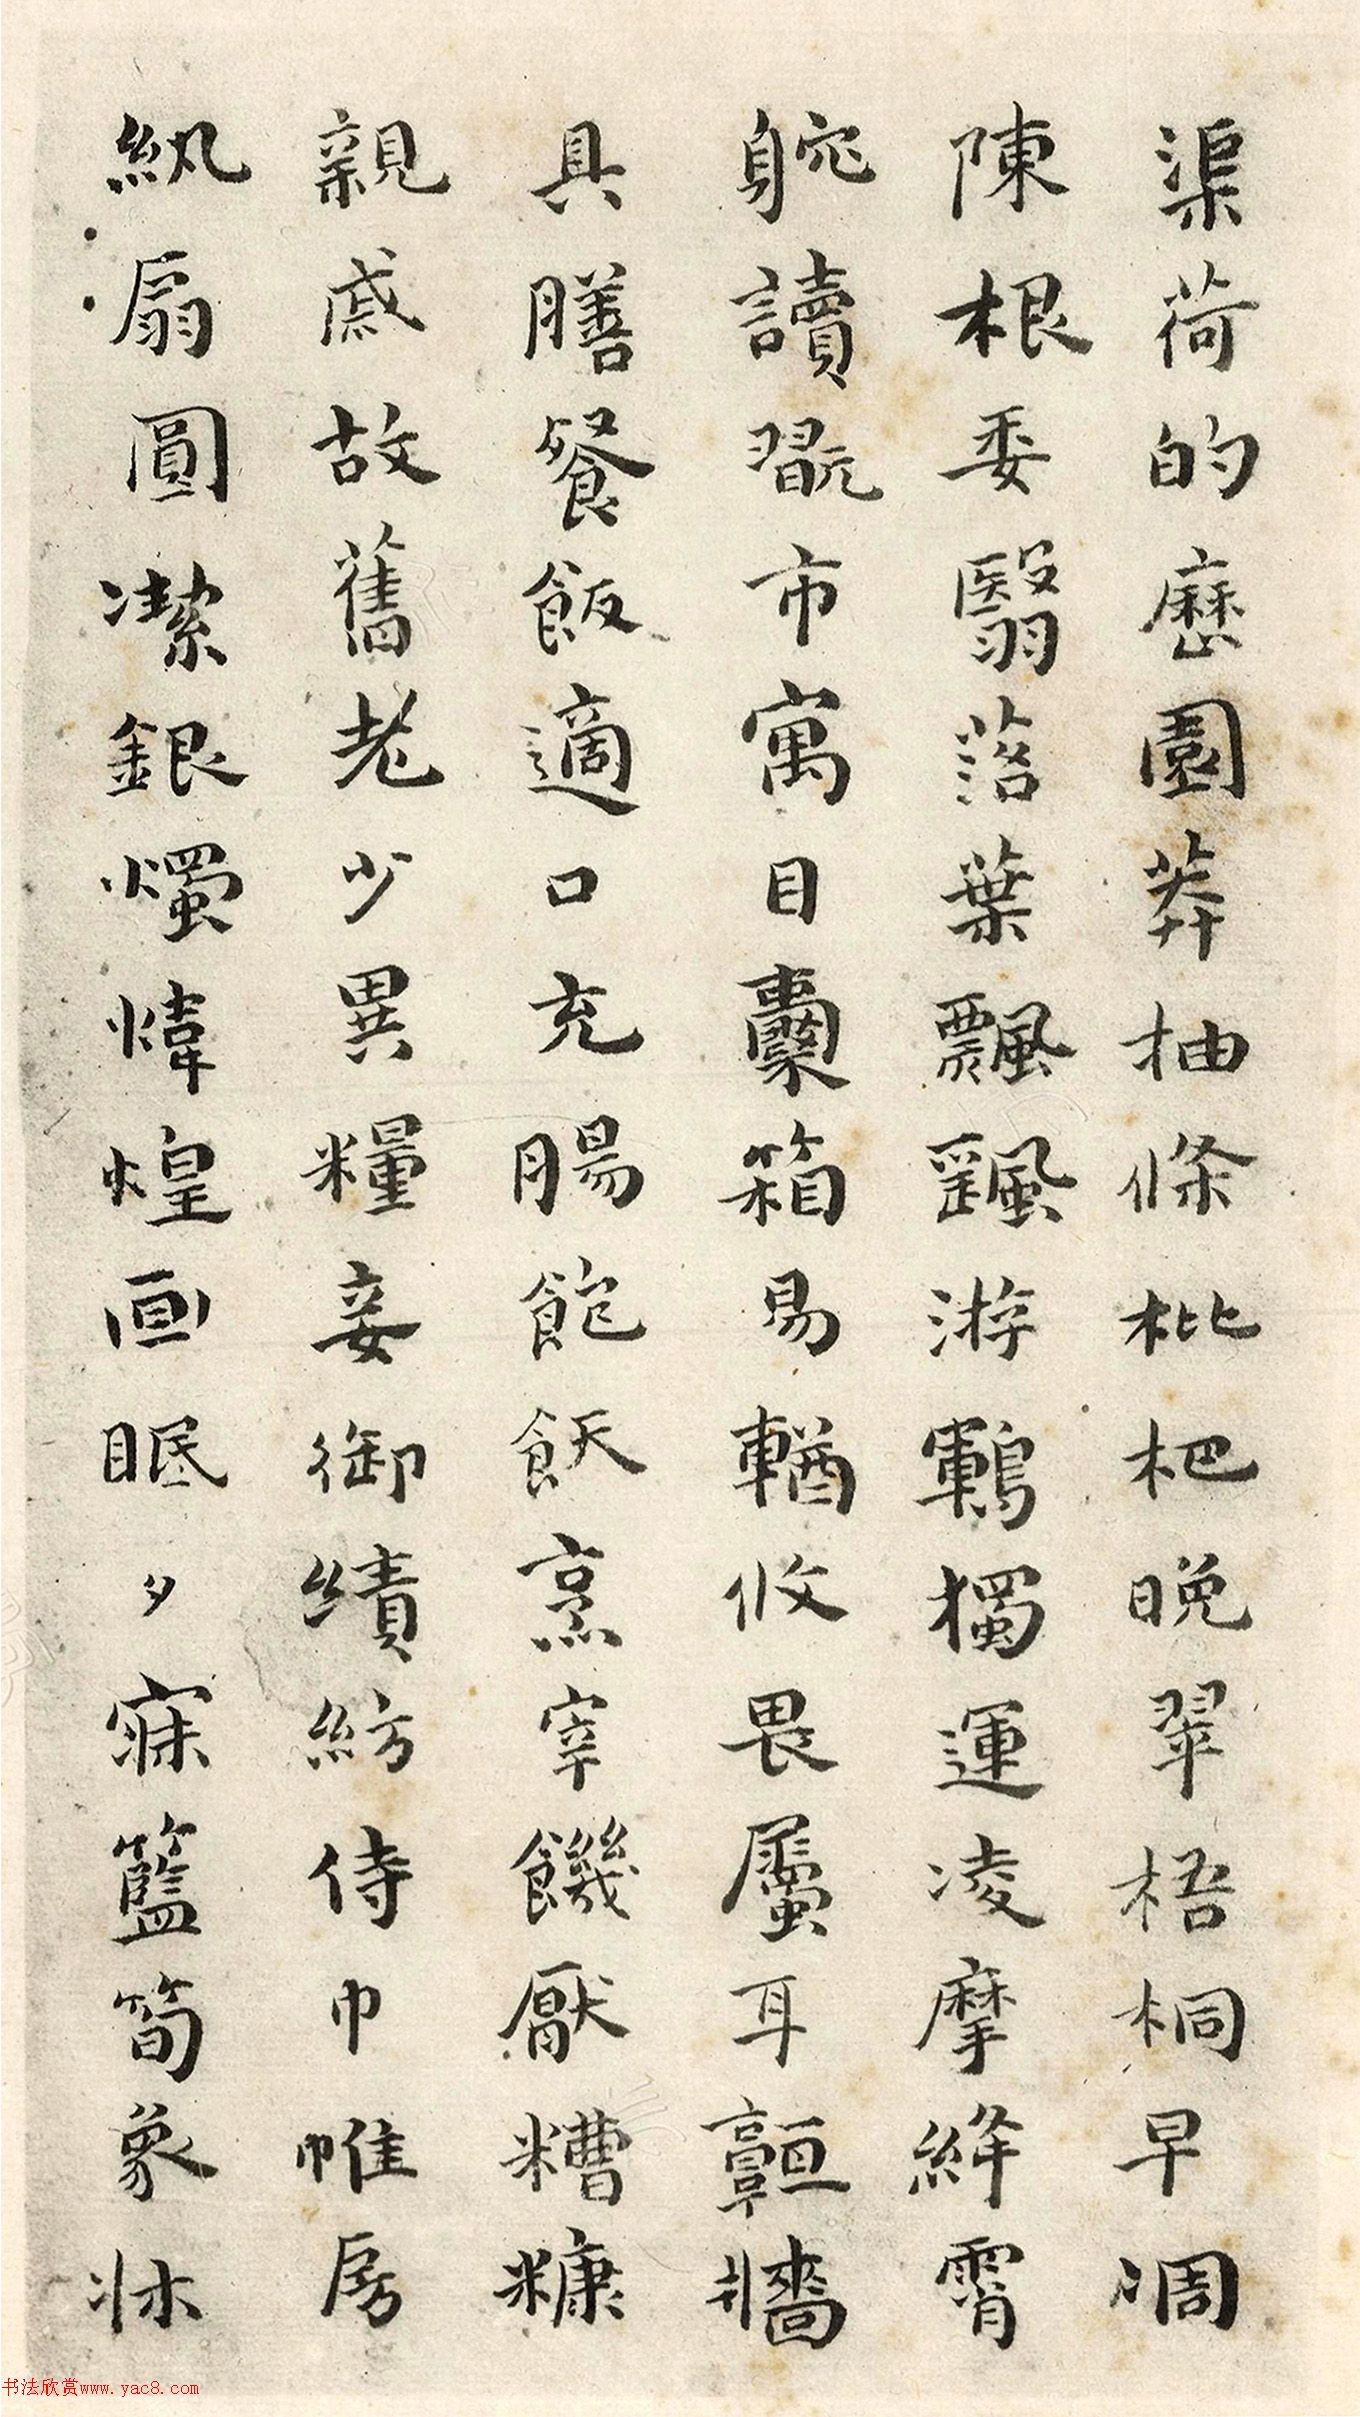 渠荷的歷園莽抽條枇杷晚翠梧桐早凋
陳根委翳落葉飄颻游鵾獨運凌摩絳霄
躭讀翫市寓目囊箱易輶攸畏屬耳垣牆
具膳餐飯適口充腸飽飫烹宰饑厭糟糠
親戚故舊老少異糧妾御績紡侍巾帷房
紈扇圓潔銀燭煒煌畫眠夕寐籃筍象牀
书法欣赏www.yac8.com